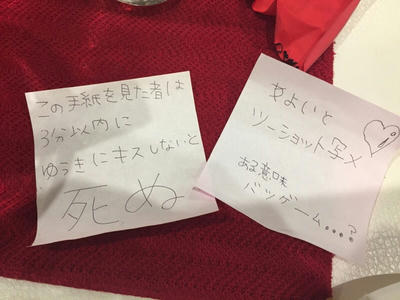 この手紙を見た者は
3分以内に
ゆうきにキスしないと
死ぬ
ツーショット写メ
ある意味
バツゲーム....?